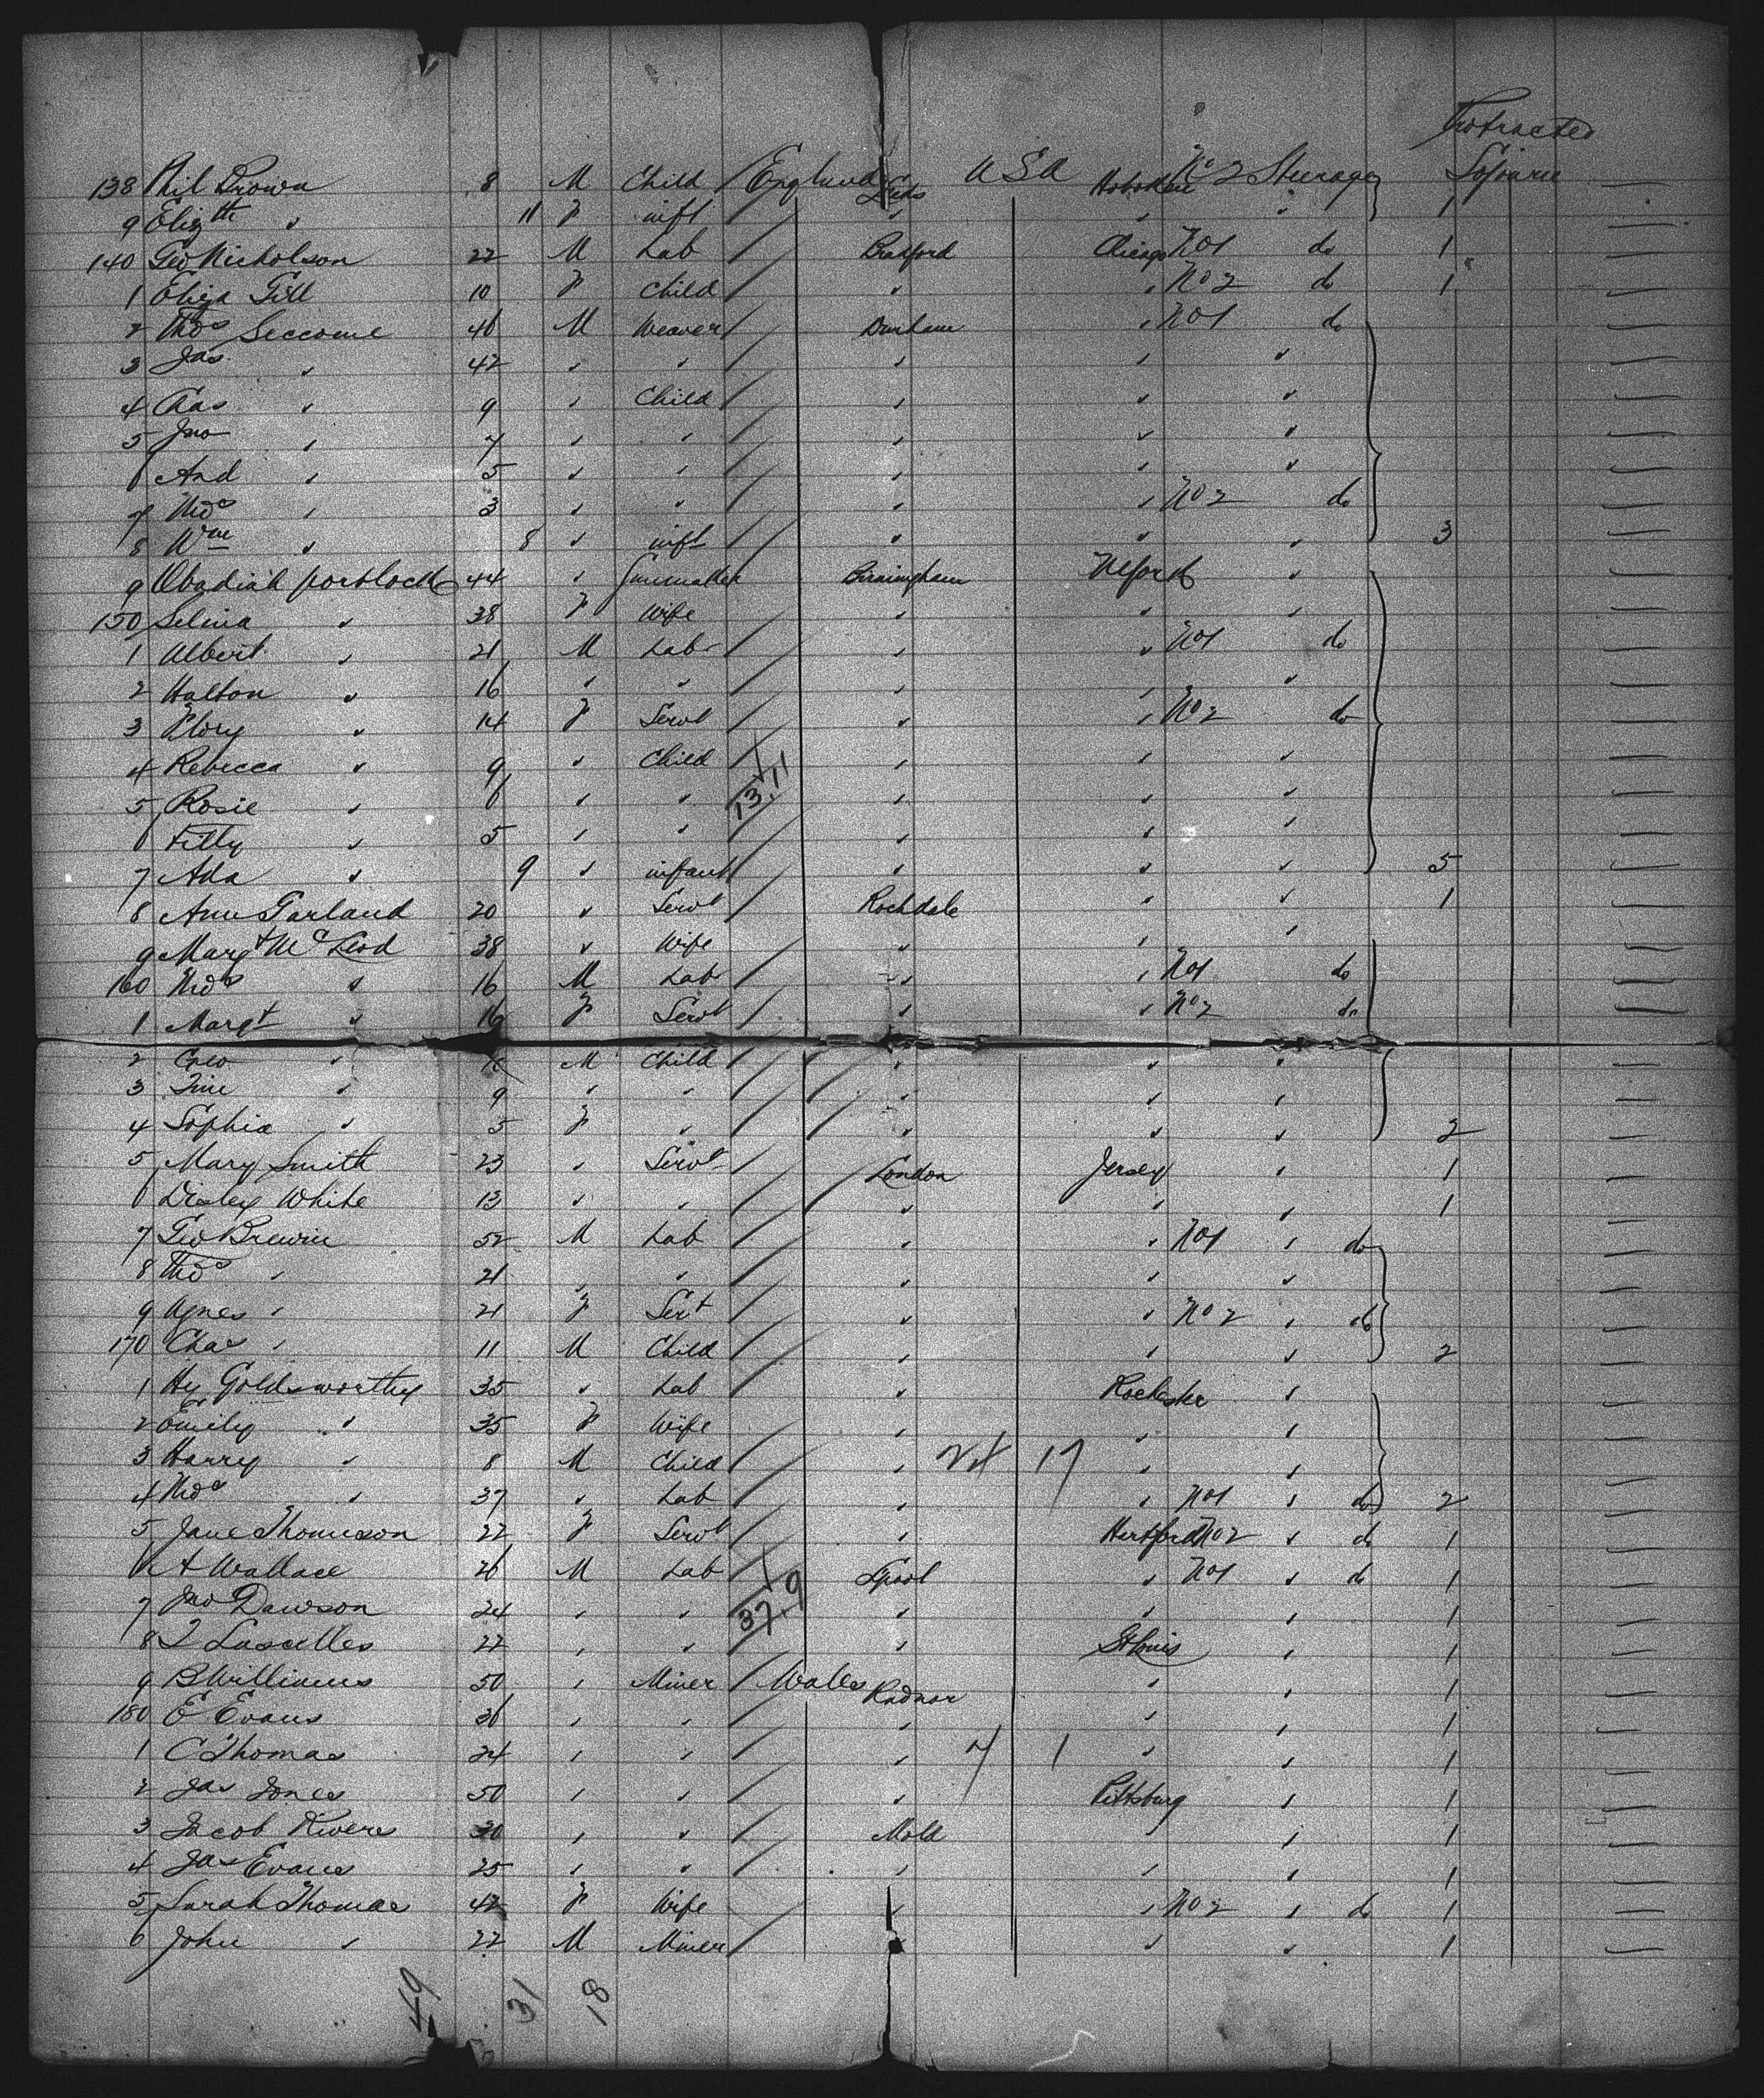 Protracted
138 Phil Brown 8 M Child England Leeds USA Hoboken No 2 Steerage Sojourn
9 Elizth " 11 F inft " " " 1
140 Geo Nicholson 22 M Lab Bradford Chicago No 1 do 1
1 Eliza Gill 10 F Child " " No 2 do 1
2 Thos Seccome 46 M Weaver Durham " No 1 do
3 Jas. " 42 " " " " "
4 Chas " 9 " Child " " "
5 Jno " 7 " " " " "
6 And " 5 " " " " "
7 Thos " 3 " " " " No 2 do
8 Wm " 8 " inft " " " 3
9 Obadiah porblock 44 " Gunmaker Birmingham NYork "
150 Selina " 38 F Wife " " "
1 Albert " 21 M Lab " " No 1 do
2 Halton " 16 " " " " "
3 Flory " 14 F Servt " " No 2 do
4 Rebecca " 9 " Child " " "
5 Rosie " 6 " " 13.11 " " "
6 Tilly " 5 " " " " "
7 Ada " 9 " infant " " " 5
8 Ann Garland 20 " Servt Rochdale " " 1
9 Margt McLeod 38 " Wife " " "
160 Thos " 16 M Lab " " No 1 do
1 Margt " 16 F Servt " " No 2 do
2 Geo " M Child " " "
3 Jim " 9 " " " " "
4 Sophia " 5 F " " " " 2
5 Mary Smith 23 " Servt London Jersey " 1
6 Disley White 13 " " " " " 1
7 Geo Brewin 52 M Lab " " No 1 " do
8 Thos " 21 " " " " "
9 Agnes " 21 F Sert " " No 2 " do
170 Chas " 11 M Child " " " 2
1 Hy Goldsworthy 35 " Lab " Rochester "
2 Emily " 35 F Wife " " "
3 Harry " 8 M Child " 24 17 " "
4 Thos " 37 " Lab " " No 1 " do 2
5 Jane Thomson 22 F Servt " Hertford No 2 " do 1
6 A Wallace 26 M Lab Lpool " No 1 " do 1
7 Jno Dawson 24 " " 37.9 " " " 1
8 J Lascelles 22 " " " St Louis " 1
9 B Williams 50 " Miner Wales Radnor " " 1
180 E Evans 36 " " " " " 1
1 C Thomas 24 " " " 7 1 " " 1
2 Jas Jones 50 " " " Pittsburg " 1
3 Jacob Rivers 30 " " Mold " " 1
4 Jas Evans 25 " " " " " 1
5 Sarah Thomas 42 F Wife " " No 2 " do 1
6 John " 22 M Miner " " " 1
49 31 18